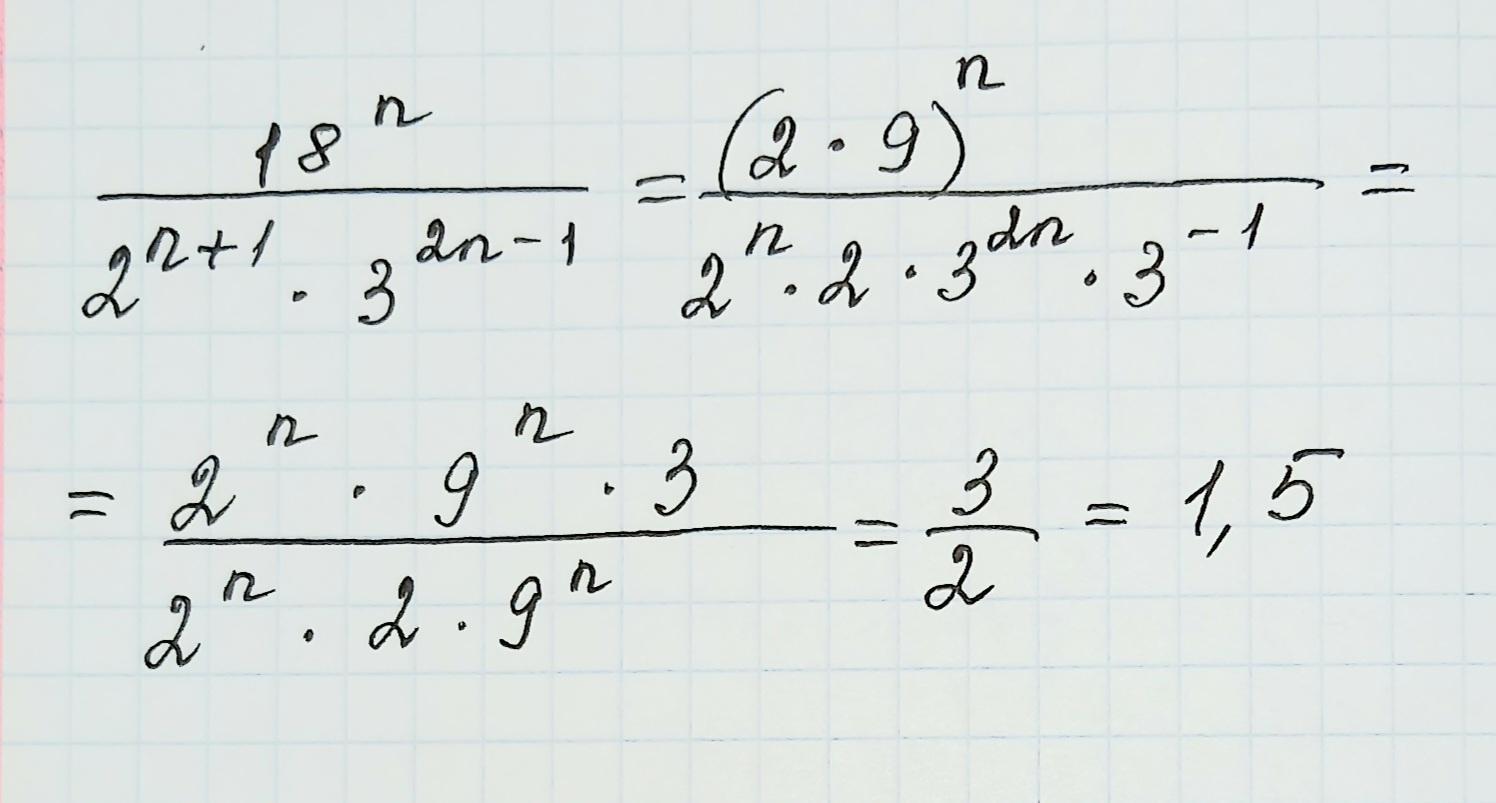 18ⁿ / (2ⁿ⁺¹ · 3²ⁿ⁻¹) = (2 · 9)ⁿ / (2ⁿ · 2 · 3²ⁿ · 3⁻¹) =
= (2ⁿ · 9ⁿ · 3) / (2ⁿ · 2 · 9ⁿ) = 3/2 = 1,5